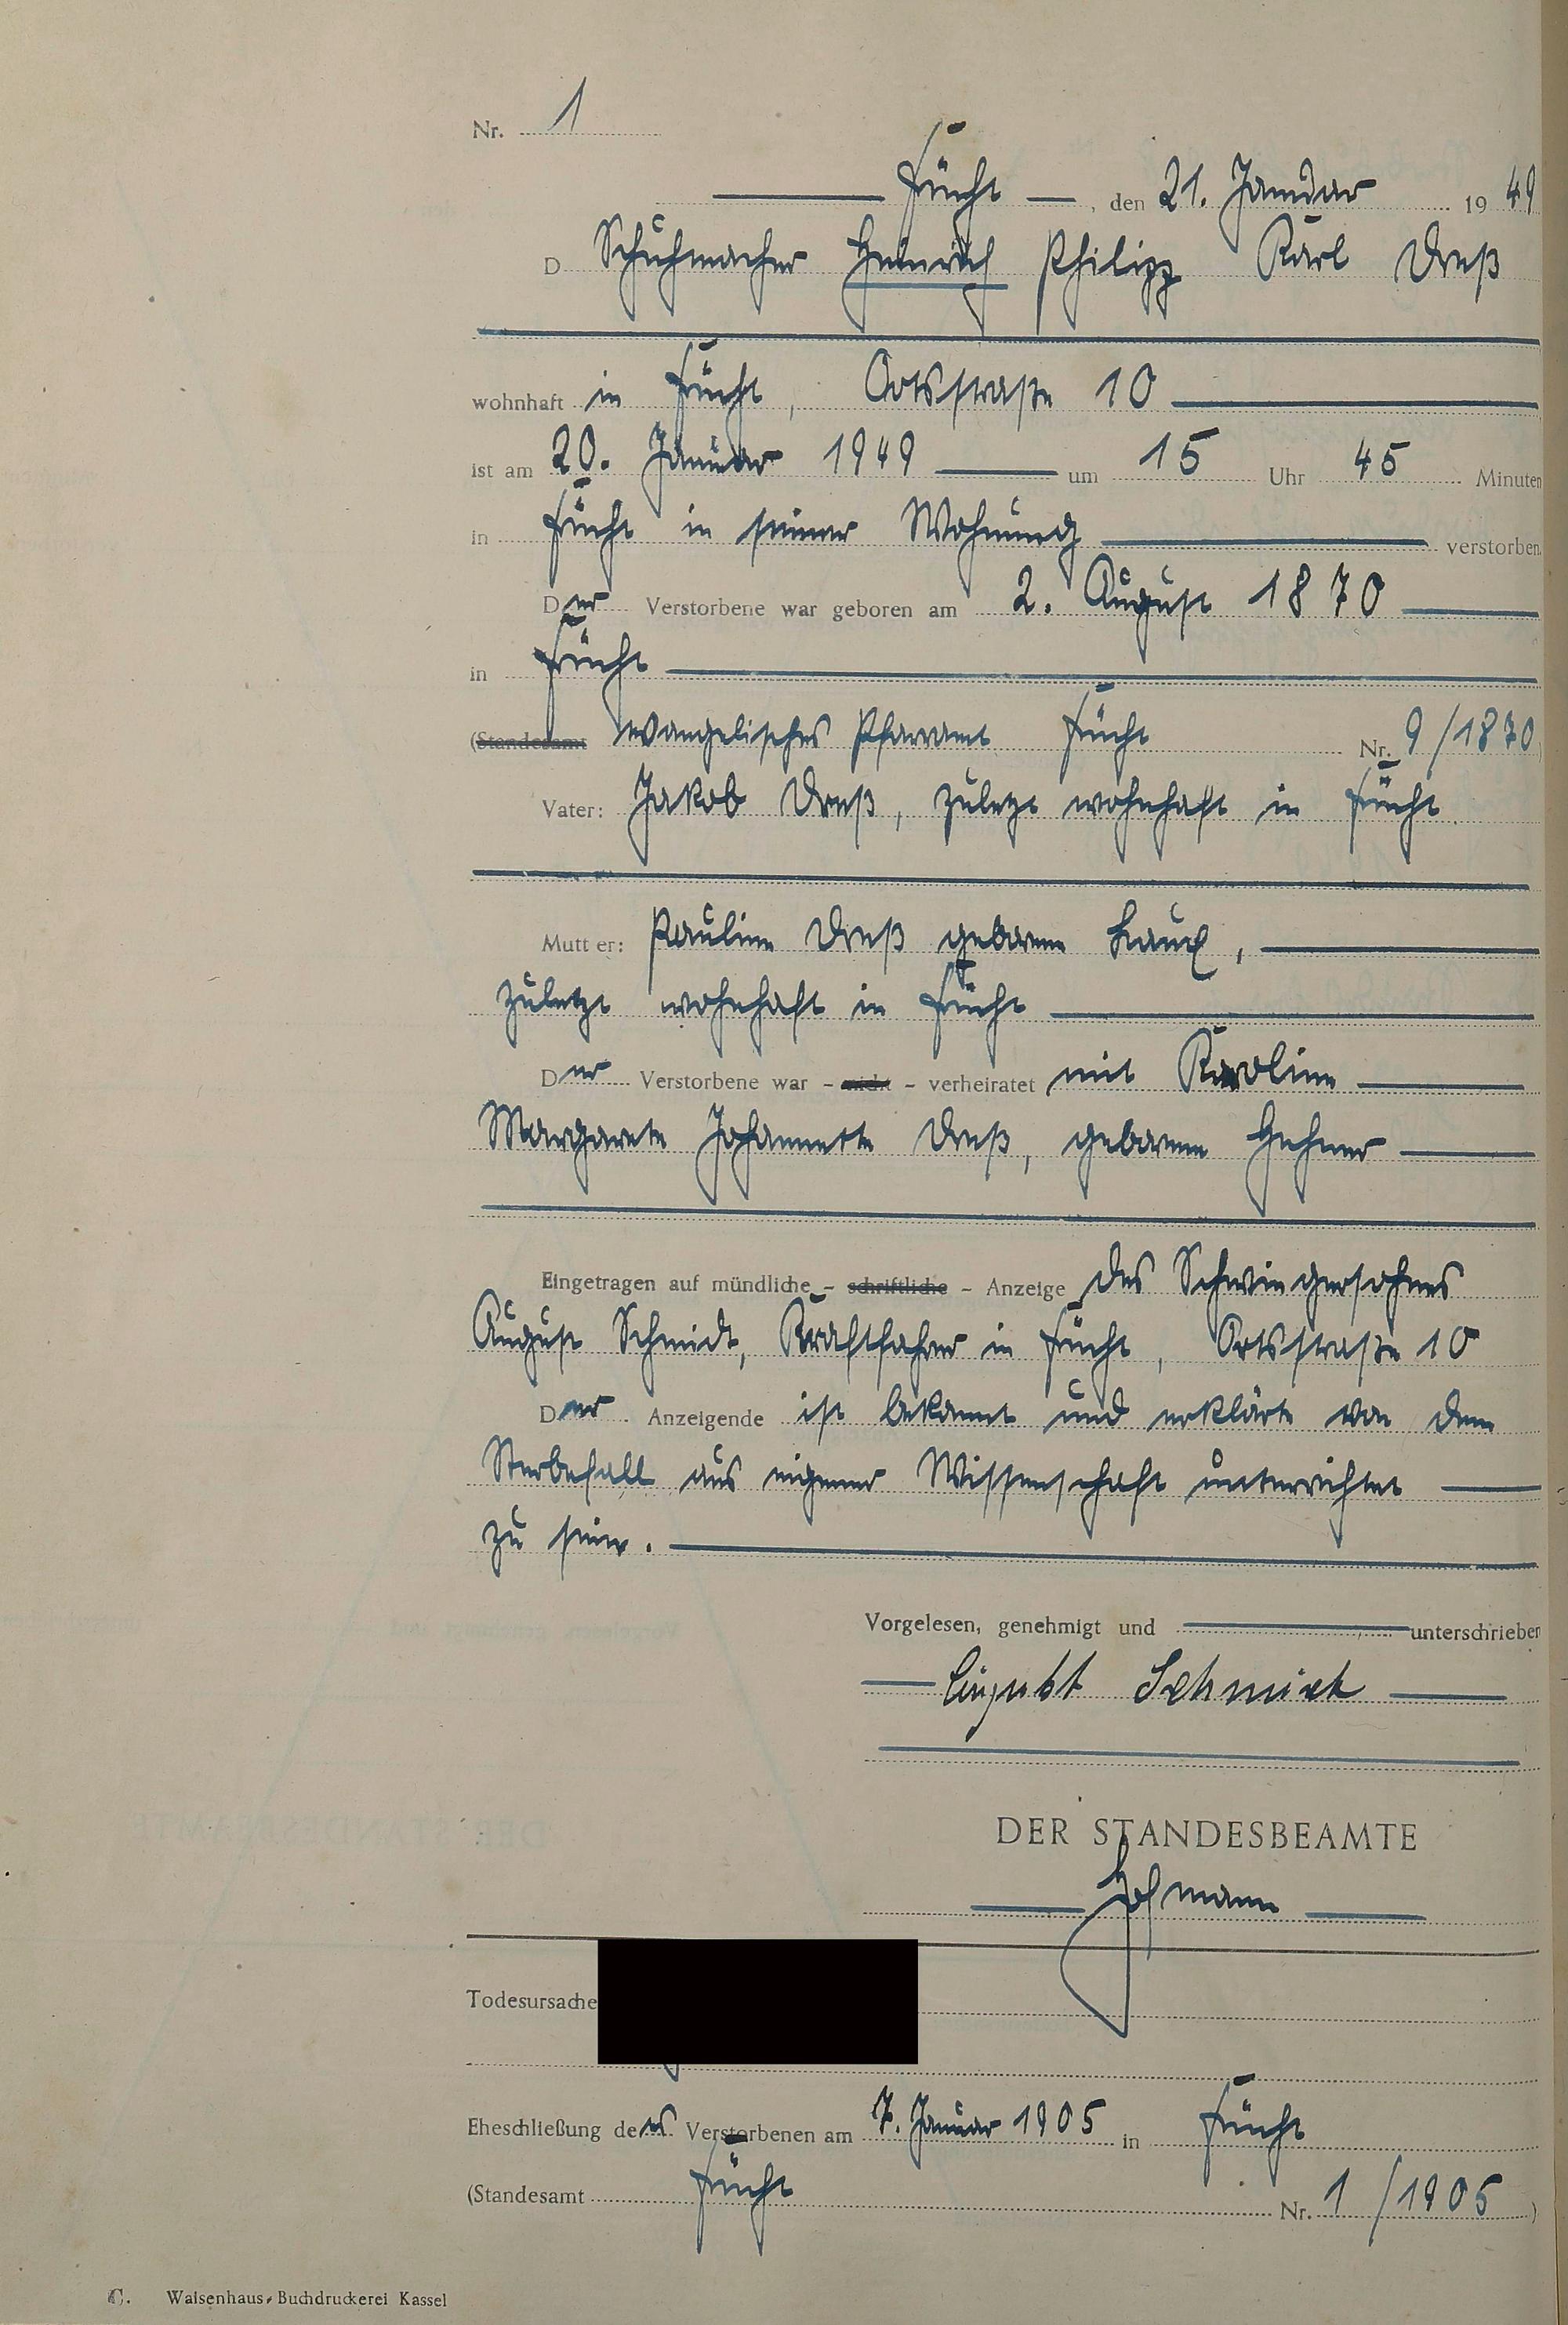 Nr. 1
Frücht, den 21. Januar 1949
D Schuhmacher Heinrich Philipp Karl Dreß
wohnhaft in Frücht, Ortsstraße 10
ist am 20. Januar 1949 um 15 Uhr 45 Minuten
in Frücht in seiner Wohnung verstorben.
Der Verstorbene war geboren am 2. August 1870
in Frücht
(Standesamt evangelisches Pfarramt Frücht Nr. 9/1870)
Vater: Jakob Dreß, zuletzt wohnhaft in Frücht.
Mutter: Pauline Dreß geborene Laux,
zuletzt wohnhaft in Frücht
Der Verstorbene war - nicht - verheiratet mit Karoline
Margarete Johannette Dreß, geborene Hehner
Eingetragen auf mündliche - schriftliche - Anzeige des Schwiegersohnes
August Schmidt, Kraftfahrer in Frücht, Ortsstraße 10
Der Anzeigende ist bekannt und erklärte von dem
Sterbefall aus eigener Wissenschaft unterrichtet
zu sein.
Vorgelesen, genehmigt und unterschrieben
August Schmidt
DER STANDESBEAMTE
Hofmann
Todesursache
Eheschließung des Verstorbenen am 7. Januar 1905 in Frücht
(Standesamt Frücht Nr. 1/1905)
C. Waisenhaus-Buchdruckerei Kassel